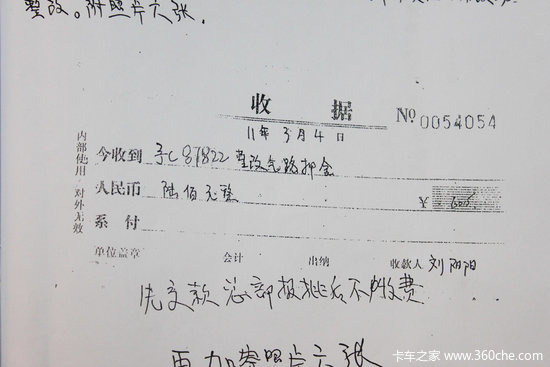 整改。附照片六张.
收 据 № 0054054
11年3月4日
内部使用 对外无效
今收到 予C87822 整改气路押金
人民币 陆佰元整 ¥ 600
系 付
单位盖章 会计 出纳 收款人 刘阴阳
先交款 总部报批后不缴费
再加 照片六张
卡车之家 www.360che.com